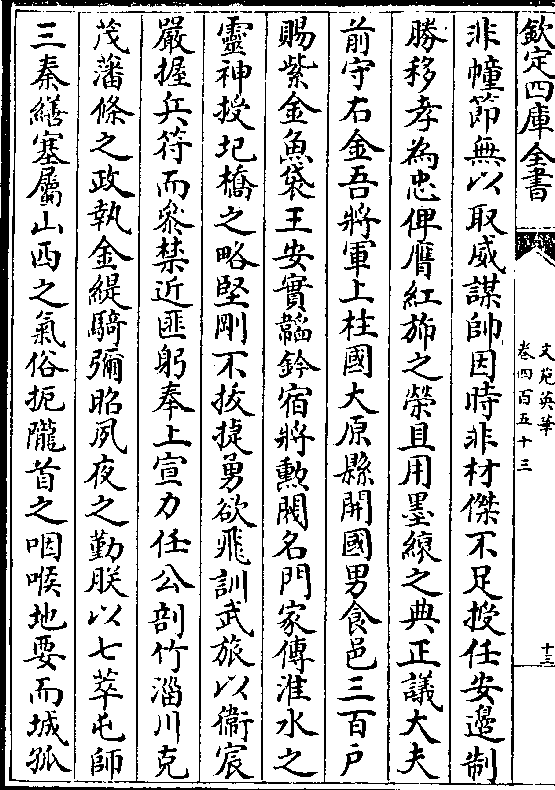 欽定四庫全書
文苑英華
卷四百五十三
十三
非幢節無以取威謀帥因時非材傑不足授任安邊制
勝移孝為忠俾膺紅斾之榮且用墨縗之典正議大夫
前守右金吾將軍上柱國大原縣開國男食邑三百户
賜紫金魚袋王安實韜鈐宿將勲閥名門家傳淮水之
靈神授圯橋之略堅剛不拔捷勇欲飛訓武旅以衞宸
嚴握兵符而叅禁近匪躬奉上宣力任公剖竹淄川克
茂藩條之政執金緹騎彌昭夙夜之勤朕以七萃屯師
三秦繕塞屬山西之氣俗扼隴首之咽喉地要而城孤